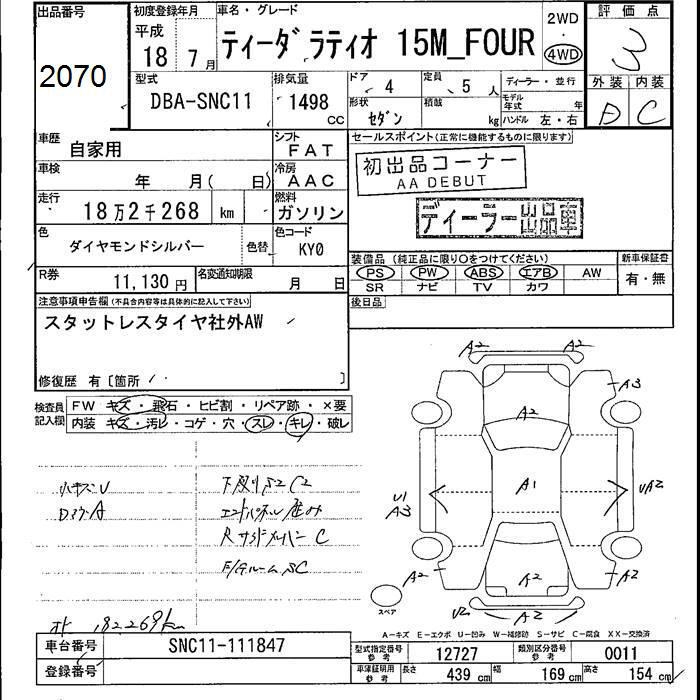 出品番号
2070
初度登録年月
平成
18 7 月
車名・グレード
ティーダ ラティオ 15M_FOUR
2WD
・
4WD
評価点
3
外装 内装
D C
型式
DBA-SNC11
排気量
1498 cc
ドア 4
形状 セダン
定員 5 人
積載 kg
ディーラー・並行
モデル年式 年
ハンドル 左・右
車歴
自家用
シフト
FAT
車検
年 月( 日)
冷房
AAC
走行
18万2千268 km
燃料
ガソリン
色
ダイヤモンドシルバー
色替
色コード
KY0
R券
11,130 円
名変通知期限
月 日
セールスポイント(正常に機能するものに限ります)
初出品コーナー
AA DEBUT
ディーラー出品車
装備品 (純正品に限り○をつけてください)
PS PW ABS エアB AW
SR ナビ TV カワ
新車保証書
有・無
後日品
注意事項申告欄(不具合内容等は具体的に記入して下さい)
スタットレスタイヤ社外AW
修復歴 有〔箇所 〕
検査員記入欄
FW キズ・飛石・ヒビ割・リペア跡・×要
内装 キズ・汚レ・コゲ・穴・スレ・キレ・破レ
小キズU
下廻りS2 C2
エンドパネル歪み
Rサイドメンバー C
F/Gルーム SC
オド 182269km
A2 A2
A3
A2
A1
U1
A3
UA2
A2
A2
A2
U2
A2
スペア
A-キズ E-エクボ U-凹み W-補修跡 S-サビ C-腐食 XX-交換済
車台番号
SNC11-111847
登録番号
型式指定番号 参考 12727
類別区分番号 参考 0011
車庫証明用 参考 長さ 439 cm 幅 169 cm 高さ 154 cm